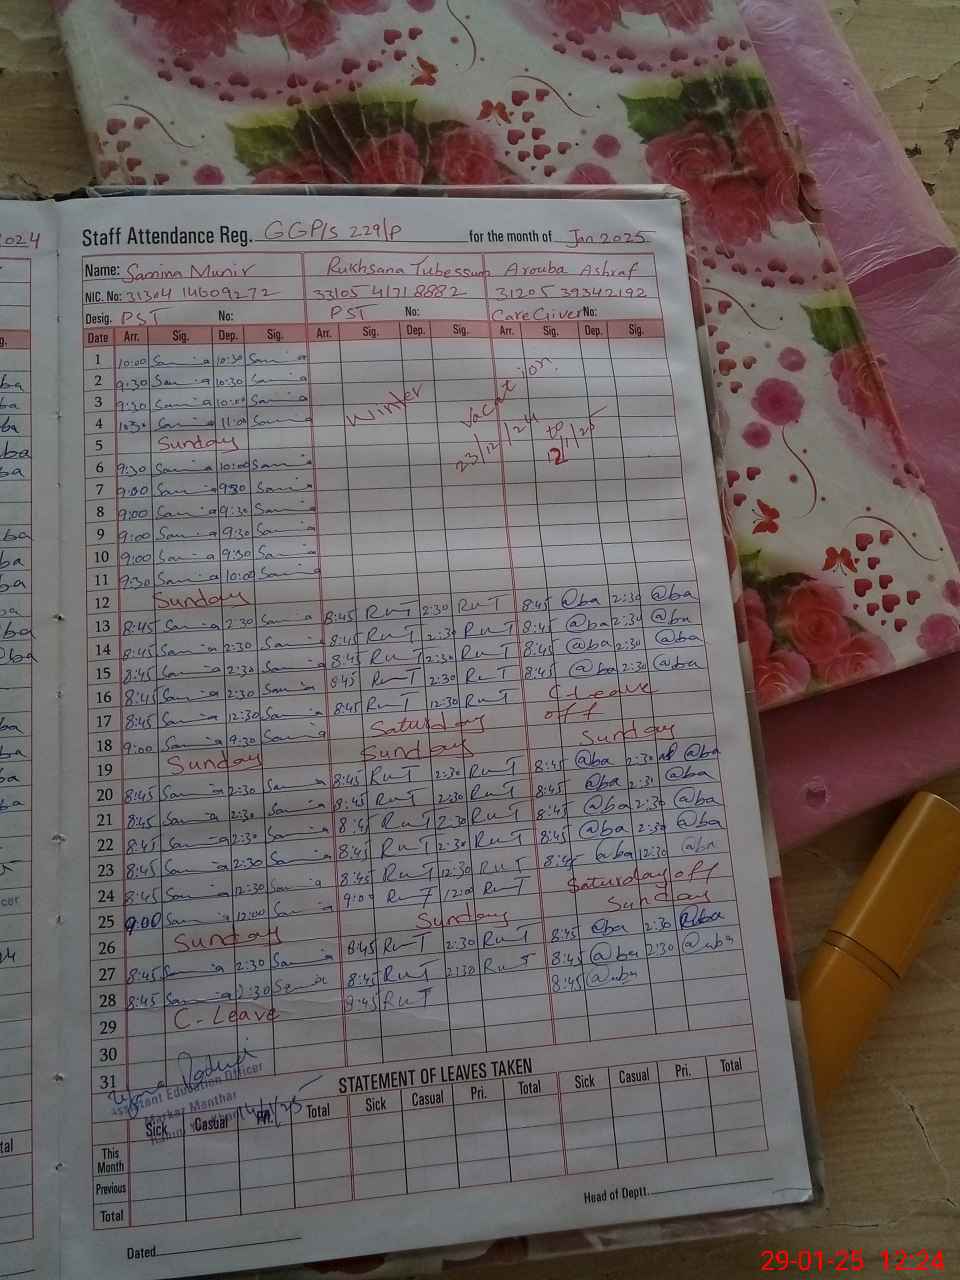 Staff Attendance Reg. GGP/S 229/P for the month of Jan 2025
Name: Samina Munir Rukhsana Tubessum Arouba Ashraf
NIC. No: 31304 14609272 33105 41718882 31205 39342192
Desig. PST No: PST No: Care Giver No:
Date Arr. Sig. Dep. Sig. Arr. Sig. Dep. Sig. Arr. Sig. Dep. Sig.
1 10:00 Samina 10:30 Samina
2 9:30 Samina 10:30 Samina
3 9:30 Samina 10:00 Samina
4 10:30 Samina 11:00 Samina
Winter Vacation
23/12/24 to 12/1/25
5 Sunday
6 9:30 Samina 10:00 Samina
7 9:00 Samina 9:30 Samina
8 9:00 Samina 9:30 Samina
9 9:00 Samina 9:30 Samina
10 9:00 Samina 9:30 Samina
11 9:30 Samina 10:00 Samina
12 Sunday
13 8:45 Samina 2:30 Samina 8:45 RuT 2:30 RuT 8:45 @ba 2:30 @ba
14 8:45 Samina 2:30 Samina 8:45 RuT 2:30 RuT 8:45 @ba 2:30 @ba
15 8:45 Samina 2:30 Samina 8:45 RuT 2:30 RuT 8:45 @ba 2:30 @ba
16 8:45 Samina 2:30 Samina 8:45 RuT 2:30 RuT 8:45 @ba 2:30 @ba
17 8:45 Samina 12:30 Samina 8:45 RuT 12:30 RuT C-Leave
18 9:00 Samina 9:30 Samina Saturday off
19 Sunday Sunday Sunday
20 8:45 Samina 2:30 Samina 8:45 RuT 2:30 RuT 8:45 @ba 2:30 @ba
21 8:45 Samina 2:30 Samina 8:45 RuT 2:30 RuT 8:45 @ba 2:30 @ba
22 8:45 Samina 2:30 Samina 8:45 RuT 2:30 RuT 8:45 @ba 2:30 @ba
23 8:45 Samina 2:30 Samina 8:45 RuT 2:30 RuT 8:45 @ba 2:30 @ba
24 8:45 Samina 12:30 Samina 8:45 RuT 12:30 RuT 8:45 @ba 12:30 @ba
25 9:00 Samina 12:00 Samina 9:00 RuT 12:00 RuT Saturday off
26 Sunday Sunday Sunday
27 8:45 Samina 2:30 Samina 8:45 RuT 2:30 RuT 8:45 @ba 2:30
28 8:45 Samina 2:30 Samina 8:45 RuT 2:30 RuT 8:45 @uba 2:30 @uba
29 C-Leave 8:45 RuT 8:45 @uba
30
31
Assistant Education Officer
Markaz Manthar
STATEMENT OF LEAVES TAKEN
Sick Casual Pri. Total Sick Casual Pri. Total Sick Casual Pri. Total
This Month
Previous
Total
Dated
Head of Deptt.
29-01-25 12:24